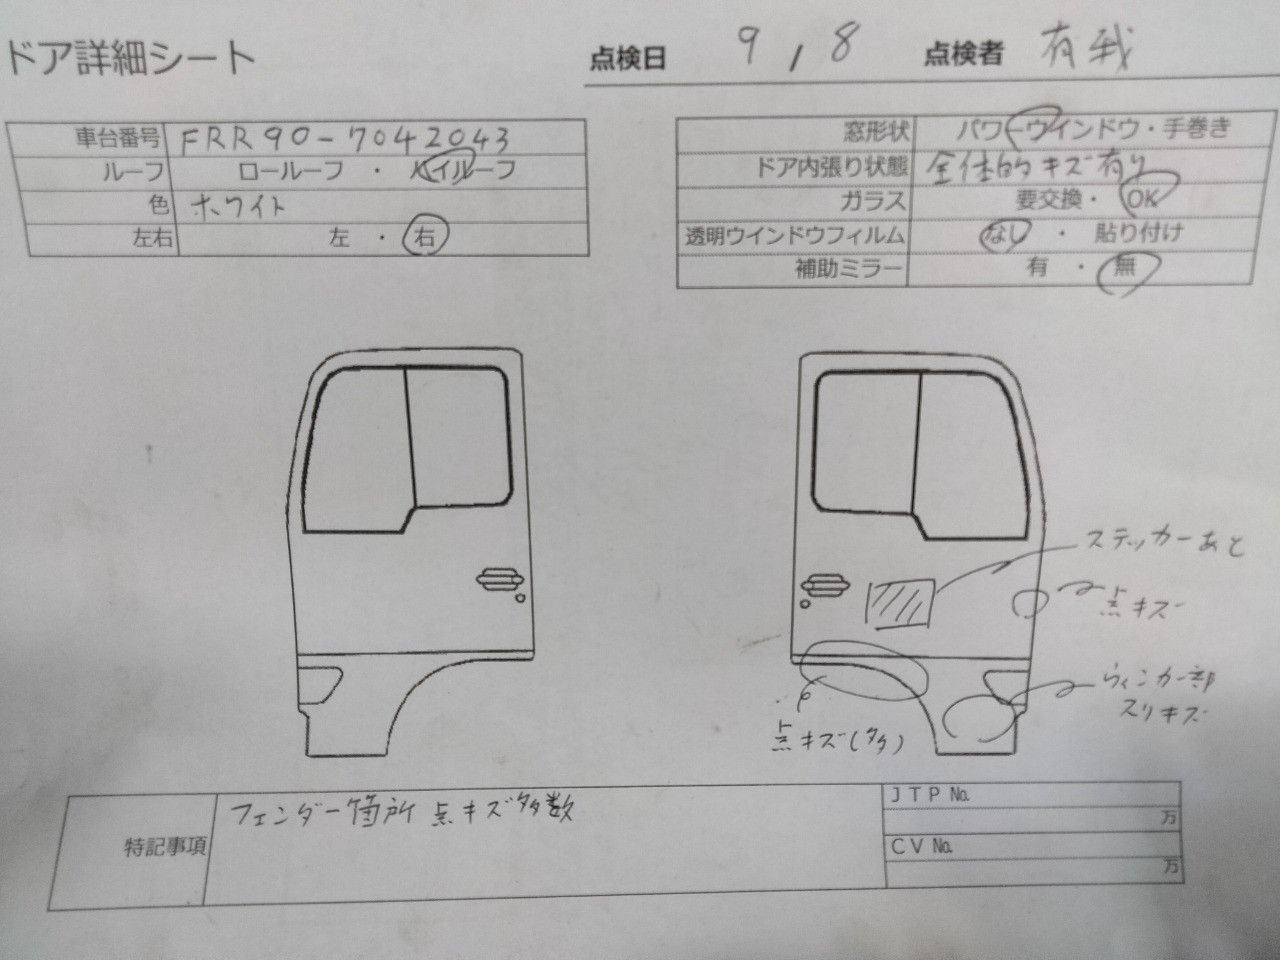 ドア詳細シート
点検日 9 / 8 点検者 有我
車台番号 FRR90-7042043
ルーフ ロールーフ ・ ハイルーフ
色 ホワイト
左右 左 ・ 右
窓形状 パワーウインドウ・手巻き
ドア内張り状態 全体的キズ有り
ガラス 要交換・ OK
透明ウインドウフィルム なし ・ 貼り付け
補助ミラー 有 ・ 無
ステッカーあと
点キズ
ウィンカー部
スリキズ
点キズ(多)
特記事項 フェンダー箇所 点キズ多数
JTP No.
万
CV No.
万